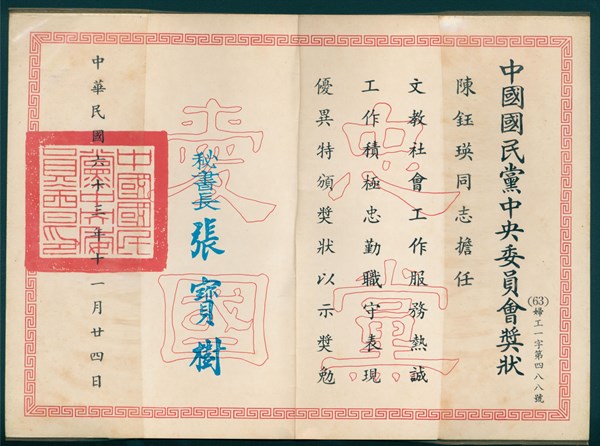 中國國民黨中央委員會獎狀
(63)婦工一字第四八八號
陳鈺瑛同志擔任
文教社會工作服務熱誠
工作積極忠勤職守表現
優異特頒獎狀以示獎勉
忠黨
愛國
秘書長 張寶樹
中國國民
黨中央委
員會印
中華民國六十三年十一月廿四日